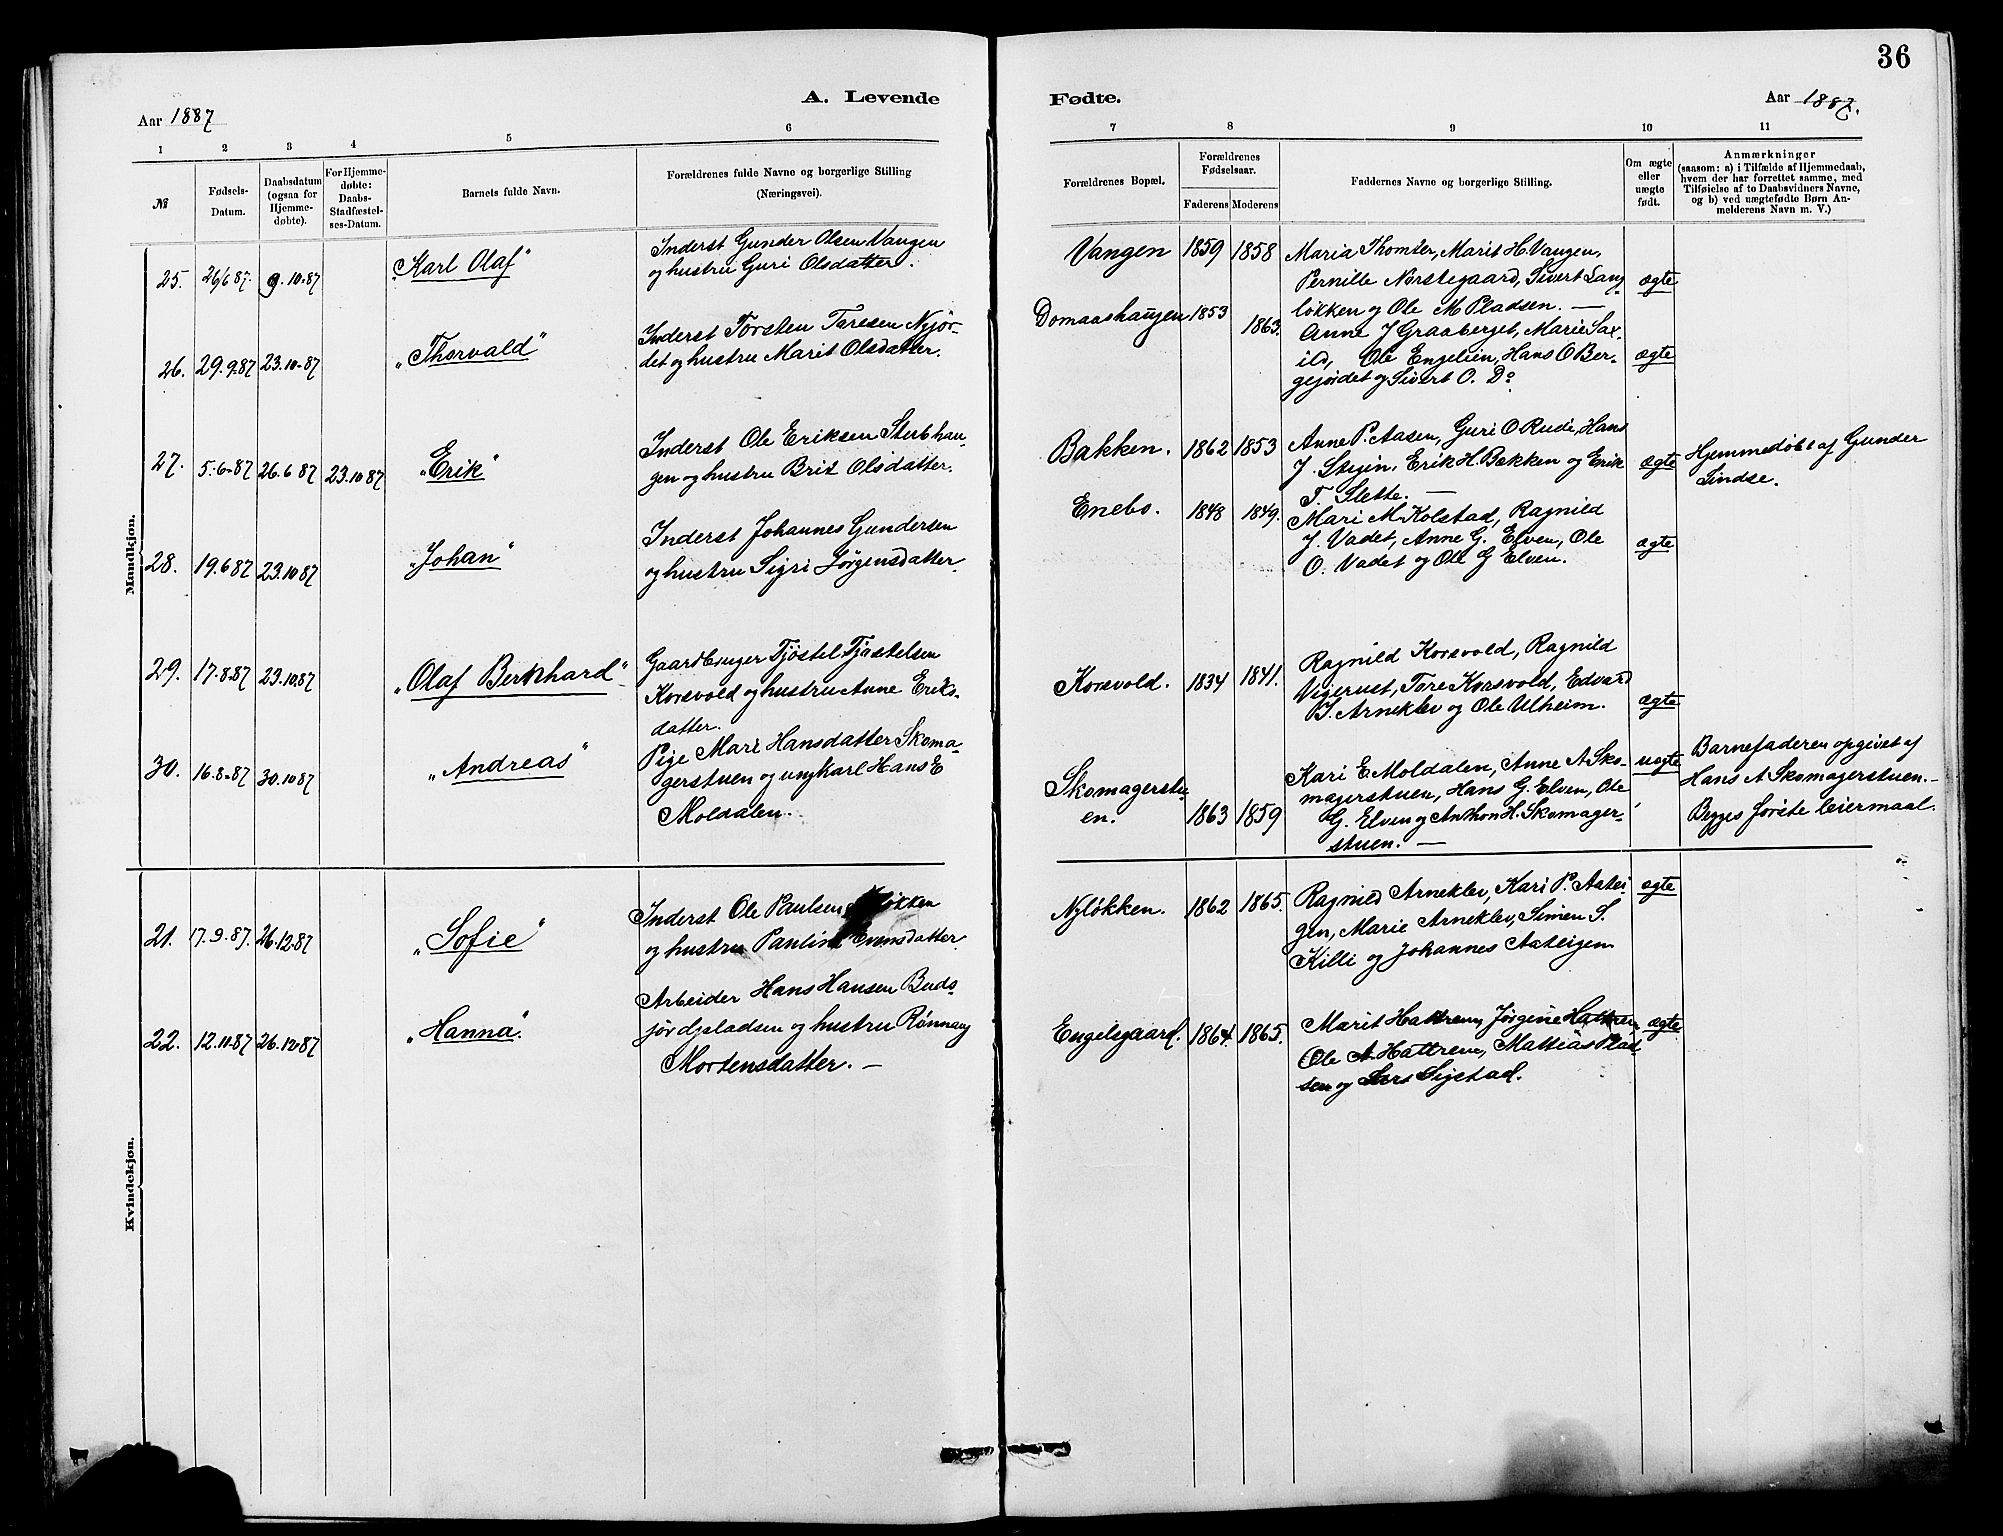 36
A. Levende Fødte.
Aar 1887
Aar 1887.
1 2 3 4 5 6 7 8 9 10 11
№
Fødsels-
Datum.
Daabsdatum
(ogsaa for
Hjemme-
døbte).
For Hjemme-
døbte:
Daabs-
Stadfæstel-
ses-Datum.
Barnets fulde Navn.
Forældrenes fulde Navne og borgerlige Stilling
(Næringsvei).
Forældrenes Bopæl.
Forældrenes
Fødselsaar.
Faderens Moderens
Faddernes Navne og borgerlige Stilling.
Om ægte
eller
uægte
født.
Anmærkninger
(saasom: a) i Tilfælde af Hjemmedaab,
hvem der har forrettet samme, med
Tilføielse af to Daabsvidners Navne,
og b) ved uægtefødte Børn An-
melderens Navn m. V.)
Mandkjøn.
25. 26/6 87. 9.10.87 "Karl Olaf"
Inderst Gunder Olsen Vangen
og hustru Guri Olsdatter.
Vangen 1859 1858
Maria Thomter, Marit H. Vangen,
Pernille Nørstegaard, Sivert Lang-
løkken og Ole M Pladsen. —
ægte
26. 29.9.87 23.10.87 "Thorvald"
Inderst Torsten Taresen Nyjør-
det og hustru Marit Olsdatter.
Domaashaugen 1853 1863.
Anne J Graaberget, Marie Sax-
ild, Ole Engelien, Hans O Ber-
gejordet og Sivert O. Do
ægte
27. 5.6.87 26.6 87 23.10 87 "Erik"
Inderst Ole Eriksen Sterbhau-
gen og hustru Brit Olsdatter.
Bakken. 1862 1853
Anne P. Aasen, Guri O. Rude, Hans
J. Stigin, Erik H. Bakken og Erik
T. Slette. —
ægte
Hjemmedøbt af Gunder
Lindse.
28. 19.6 87 23.10 87 "Johan"
Inderst Johannes Gundersen
og hustru Sigri Jørgensdatter.
Enebo. 1848 1849.
Mari M. Kolstad, Ragnild
J. Vadet, Anne G. Elven, Ole
O. Vadet og Ole G Elven.
ægte
29. 17.8.87 23.10.87 "Olaf Bernhard"
Gaardbruger Tjøstel Tjøstelsen
Korsvold og hustru Anne Eriks-
datter.
Korsvold. 1834 1841.
Ragnild Korsvold, Ragnild
Vigerust, Tore Korsvold, Edvard
I. Arneklev og Ole Ulheim.
ægte
30. 16.8.87 30.10 87 "Andreas"
Pige Mari Hansdatter Skoma-
gerstuen og ungkarl Hans E
Moldalen.
Skomagerstu-
en. 1863 1859
Kari E. Moldalen, Anne A. Sko-
magerstuen, Hans G. Elven, Ole
G. Elven og Anthon H. Skomager-
stuen. —
uægte
Barnefaderen opgivet af
Hans A Skomagerstuen.—
Begges første leiermaal.
Kvindekjøn.
21. 17.9.87. 26.12.87 "Sofie"
Inderst Ole Paulsen
og hustru Pauline
Nyløkken. 1862 1865.
Ragnild Arneklev, Kari P. Aatei-
gen, Marie Arneklev, Simen S.
Killi og Johannes Aateigen
ægte
22. 12.11.87 26.12.87 "Hanna".
Arbeider Hans Hansen Buds-
jordpladsen og hustru Rønnaug
Mortensdatter. —
Engelsgaard. 1864. 1865.
Marit Hattrem, Jørgine Hattrem
Ole A Hattrem, Mattias Plad-
sen og Lars Sigstad.
ægte